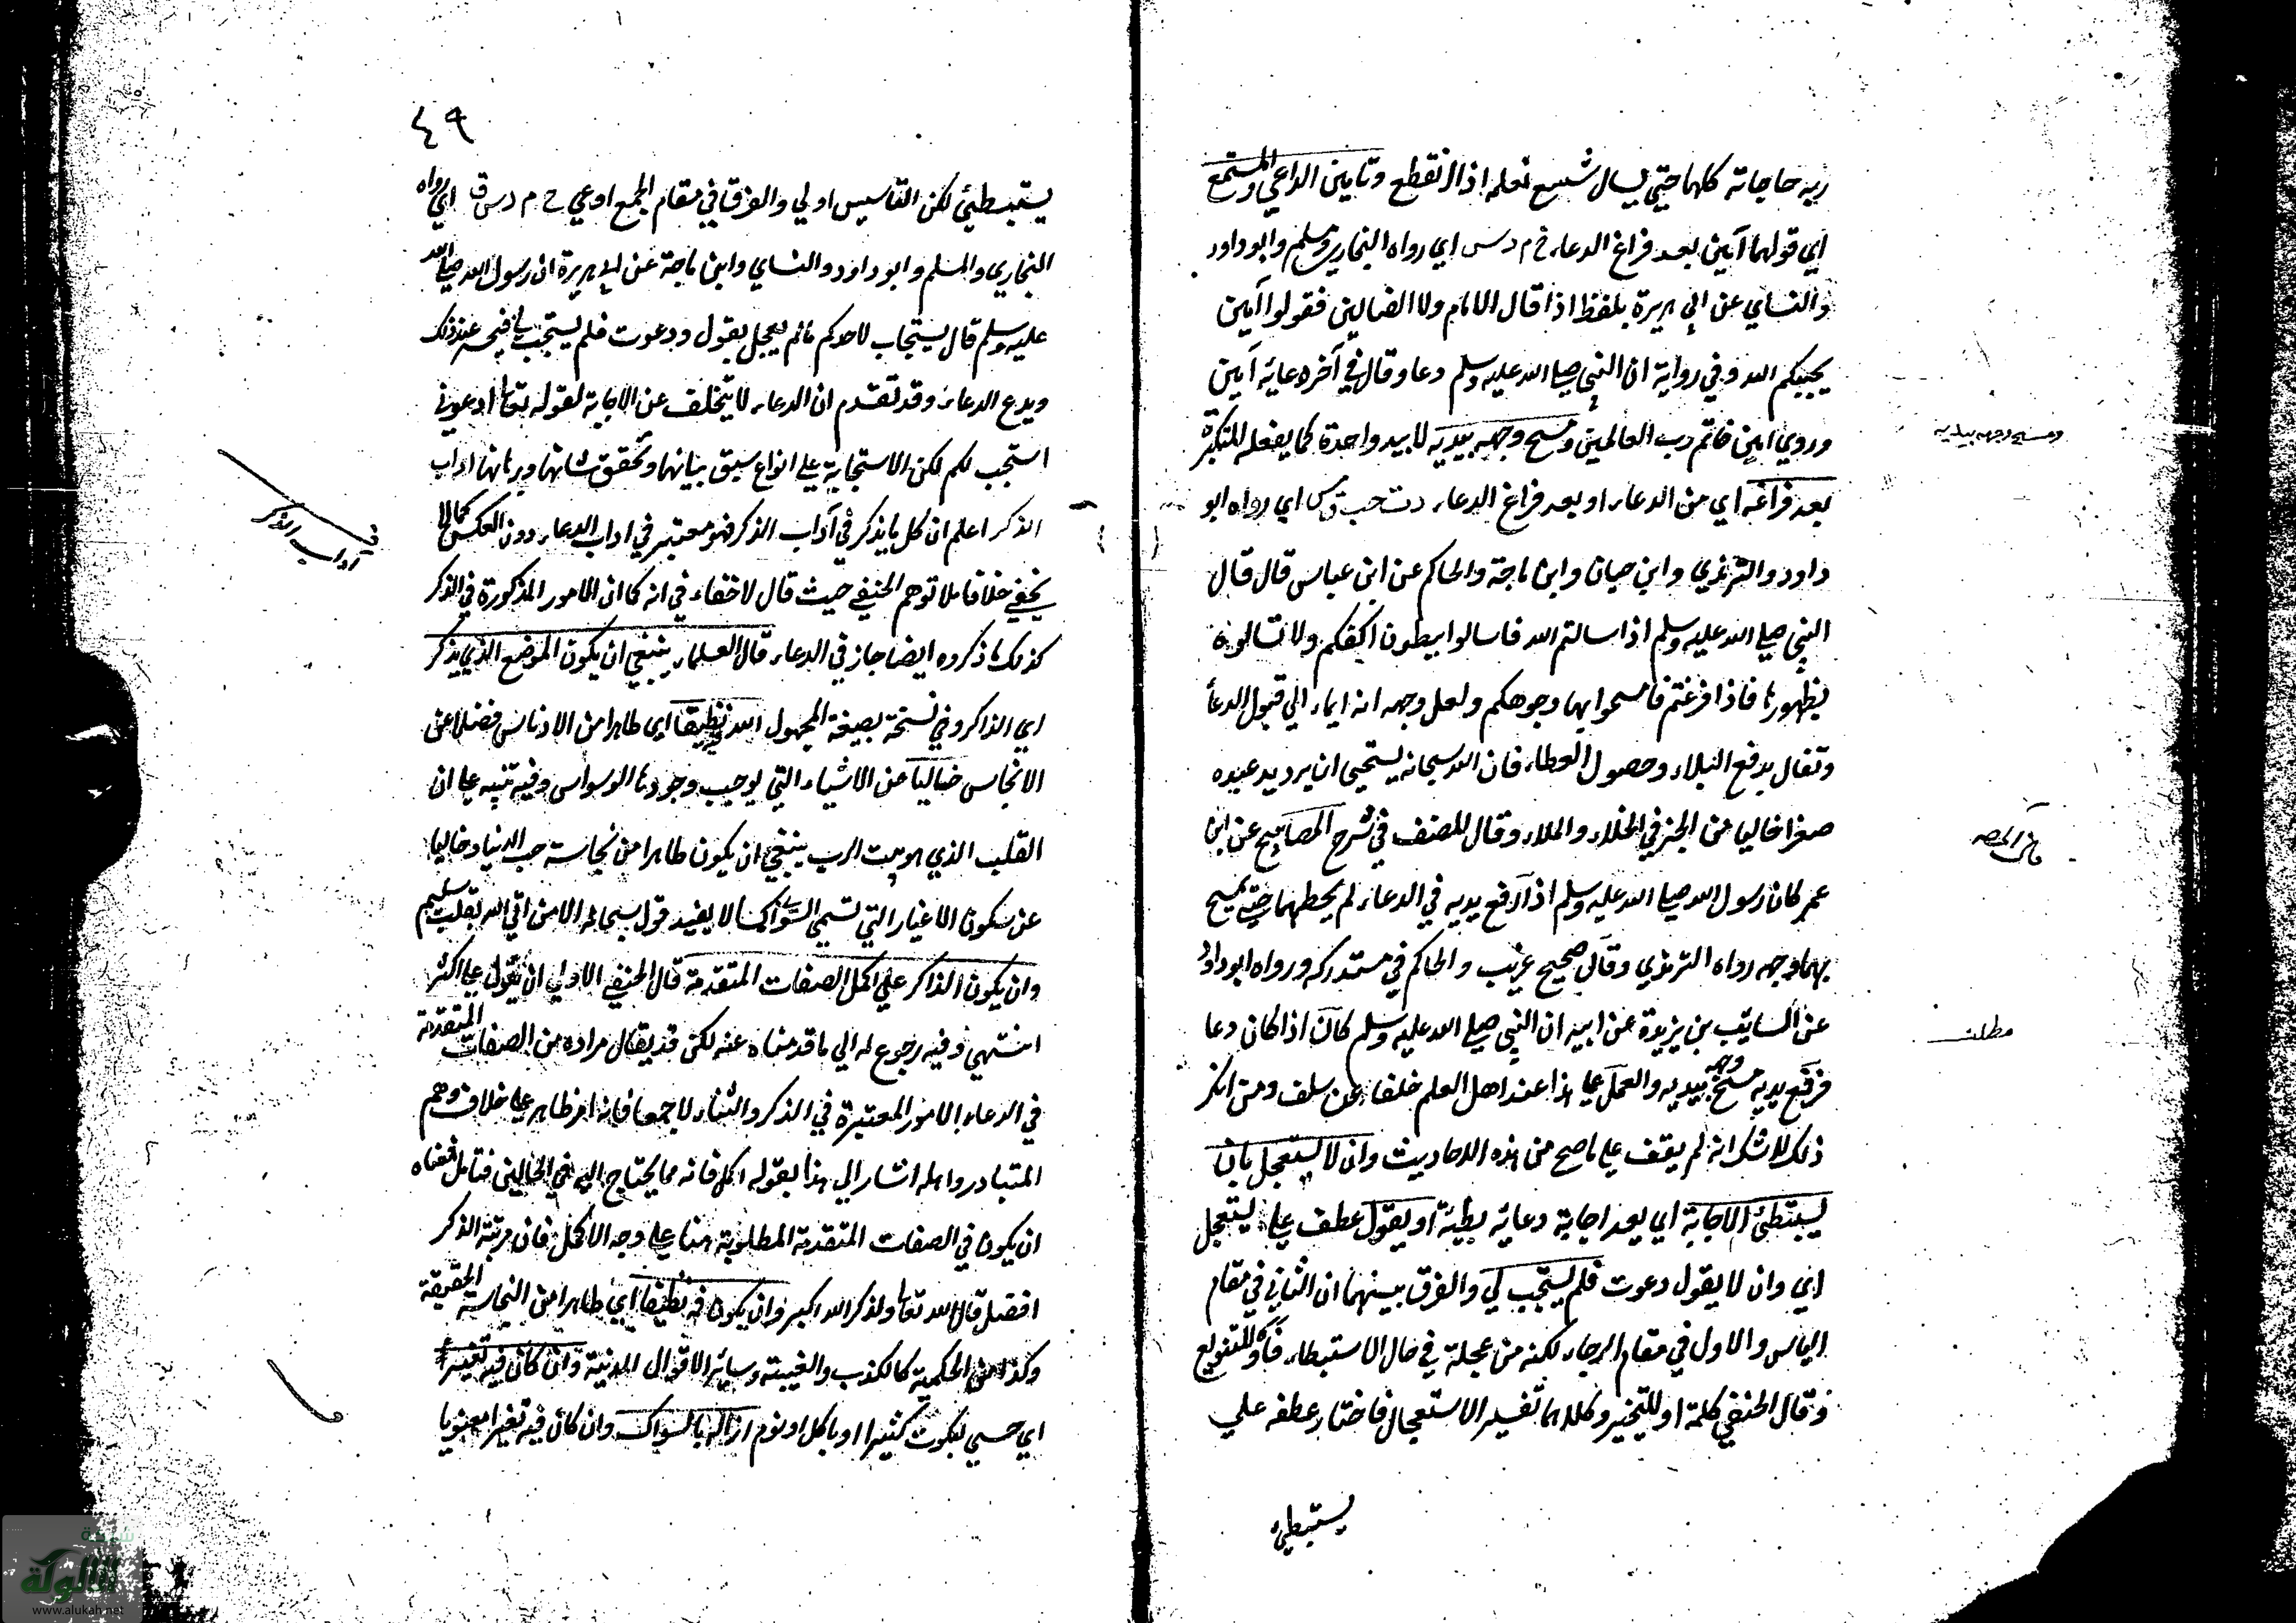 ربه حاجاته كلها حتي يسال شسع نعله اذا انقطع وتامين الداعي والمستمع
اي قولهما آمين بعد فراغ الدعاء خ م د س اي رواه البخاري ومسلم وابو داود
والنساي عن ابي هريرة بلفظ اذا قال الامام ولا الضالين فقولوا آمين
يجبكم الله وفي رواية ان النبي صلي الله عليه وسلم دعا وقال في آخر دعائه آمين
وروي امين خاتم رب العالمين ومسح وجهه بيديه لا بيد واحدة كما يفعله المتكبرة
بعد فراغه اي من الدعاء او بعد فراغ الدعاء د ت حب ق مس اي رواه ابو
داود والترمذي وابن حبان وابن ماجة والحاكم عن ابن عباس قال قال
النبي صلي الله عليه وسلم اذا سالتم الله فاسالوا ببطون اكفكم ولا تسالوه
بظهورها فاذا فرغتم فامسحوا بها وجوهكم ولعل وجهه انه ايماء الي قبول الدعا
وتفال بدفع البلاء وحصول العطاء فان الله سبحانه يستحيي ان يرد يد عبده
صفرا خاليا من الخير في الخلاء والملاء وقال المصنف في شرح المصابيح عن ابن
عمر كان رسول الله صلي الله عليه وسلم اذا رفع يديه في الدعاء لم يحطهما حتي يمسح
بهما وجهه رواه الترمذي وقال صحيح غريب والحاكم في مستدركه ورواه ابو داود
عن السايب بن يزيدة عن ابيه ان النبي صلي الله عليه وسلم كان اذا كان دعا
فرفع يديه مسح وجهه بيديه والعمل علي هذا عند اهل العلم خلفا عن سلف ومن انكر
ذلك لا شك انه لم يقف علي ما صح من هذه الاحاديث وان لا يستعجل بان
يستبطئ الاجابة اي يعد اجابة دعائه بطيئة او يقول عطف علي يستعجل
اي وان لا يقول دعوت فلم يستجب لي والفرق بينهما ان الثاني في مقام
الياس والاول في مقام الرجاء لكنه من عجلة في حال الاستبطاء فاو للتنويع
وقال الحنفي كلمة او للتخيير وكلاهما تفسير الاستعجال فاختار عطفه علي
يستبطئ
ومسح وجهه بيديه
مطلب
٤٩
يستبطئ لكن التاسيس اولي والفرق في مقام الجمع اوعي خ م د س ق اي رواه
البخاري والمسلم وابو داود والنساي وابن ماجة عن ابي هريرة ان رسول الله صلي الله
عليه وسلم قال يستجاب لاحدكم ما لم يعجل يقول ودعوت فلم يستجب لي فيحسر عند ذلك
ويدع الدعاء وقد تقدم ان الدعاء لا يتخلف عن الاجابة لقوله تعالي ادعوني
استجب لكم لكن الاستجابة علي انواع سبق بيانها وتحقق شانها وبرهانها اداب
الذكر اعلم ان كل ما يذكر في آداب الذكر فهو معتبر في اداب الدعاء دون العكس كما لا
يخفي خلافا لما توهم الحنفي حيث قال لا خفاء في انه كما ان الامور المذكورة في الذكر
كذلك ما ذكروه ايضا جاز في الدعاء قال العلماء ينبغي ان يكون الموضع الذي يذكر
اي الذاكر وفي نسخة بصيغة المجهول الله فيه نظيفا اي طاهرا من الادناس فضلا عن
الانجاس خاليا عن الاشياء التي يوجب وجودها الوسواس وفيه تنبيه علي ان
القلب الذي هو بيت الرب ينبغي ان يكون طاهرا من نجاسة حب الدنيا وخاليا
عن سكون الاغيار التي تسمي السوي كما لا يفيد قول سبحانه الا من اتي الله بقلب سليم
وان يكون الذاكر علي اكمل الصفات المتقدمة قال الحنفي الاولي ان يقول علي اكثر
انتهي وفيه رجوع له الي ما قدمناه عنه لكن قد يقال مراده من الصفات المتقدمة
في الدعاء الامور المعتبرة في الذكر والثناء لا جمعا فانه امر ظاهر علي خلاف وهم
المتبادر ولعله اشار الي هذا بقوله اكمل فانه مما يحتاج اليه في الحالين فتامل فمعناه
ان يكون في الصفات المتقدمة المطلوبة هنا علي وجه الاكمل فان مرتبة الذكر
افضل قال الله تعالي ولذكر الله اكبر وان يكون فمه نظيفا اي طاهرا من النجاسة الحقيقة
وكذا من الحكمية كالكذب والغيبة وسائر الاقوال الدنية وان كان فيه تغير
اي حسي لسكوت كثيرا او باكل او نوم ازاله بالسواك وان كان فيه تغيرا معنويا
آداب الذكر
شبكة
الألوكة
www.alukah.net